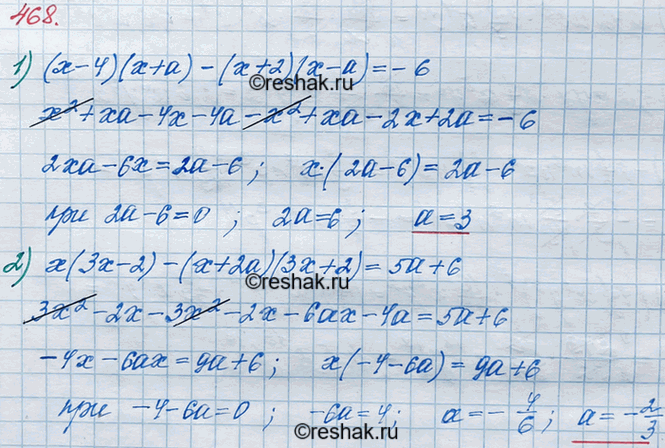 468.
1) (x-4)(x+a)-(x+2)(x-a)=-6
©reshak.ru
x²+xa-4x-4a-x²+xa-2x+2a=-6
2xa-6x=2a-6; x·(2a-6)=2a-6
при 2a-6=0; 2a=6; a=3
2) x(3x-2)-(x+2a)(3x+2)=5a+6
©reshak.ru
3x²-2x-3x²-2x-6ax-4a=5a+6
-4x-6ax=9a+6; x(-4-6a)=9a+6
©reshak.ru
при -4-6a=0; -6a=4; a=-4/6; a=-2/3